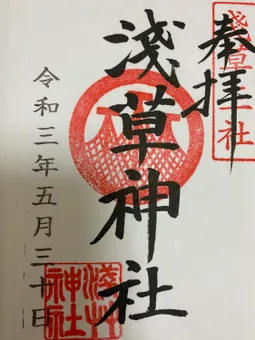 奉拝
浅草神社
令和三年五月三十日
浅草
神社